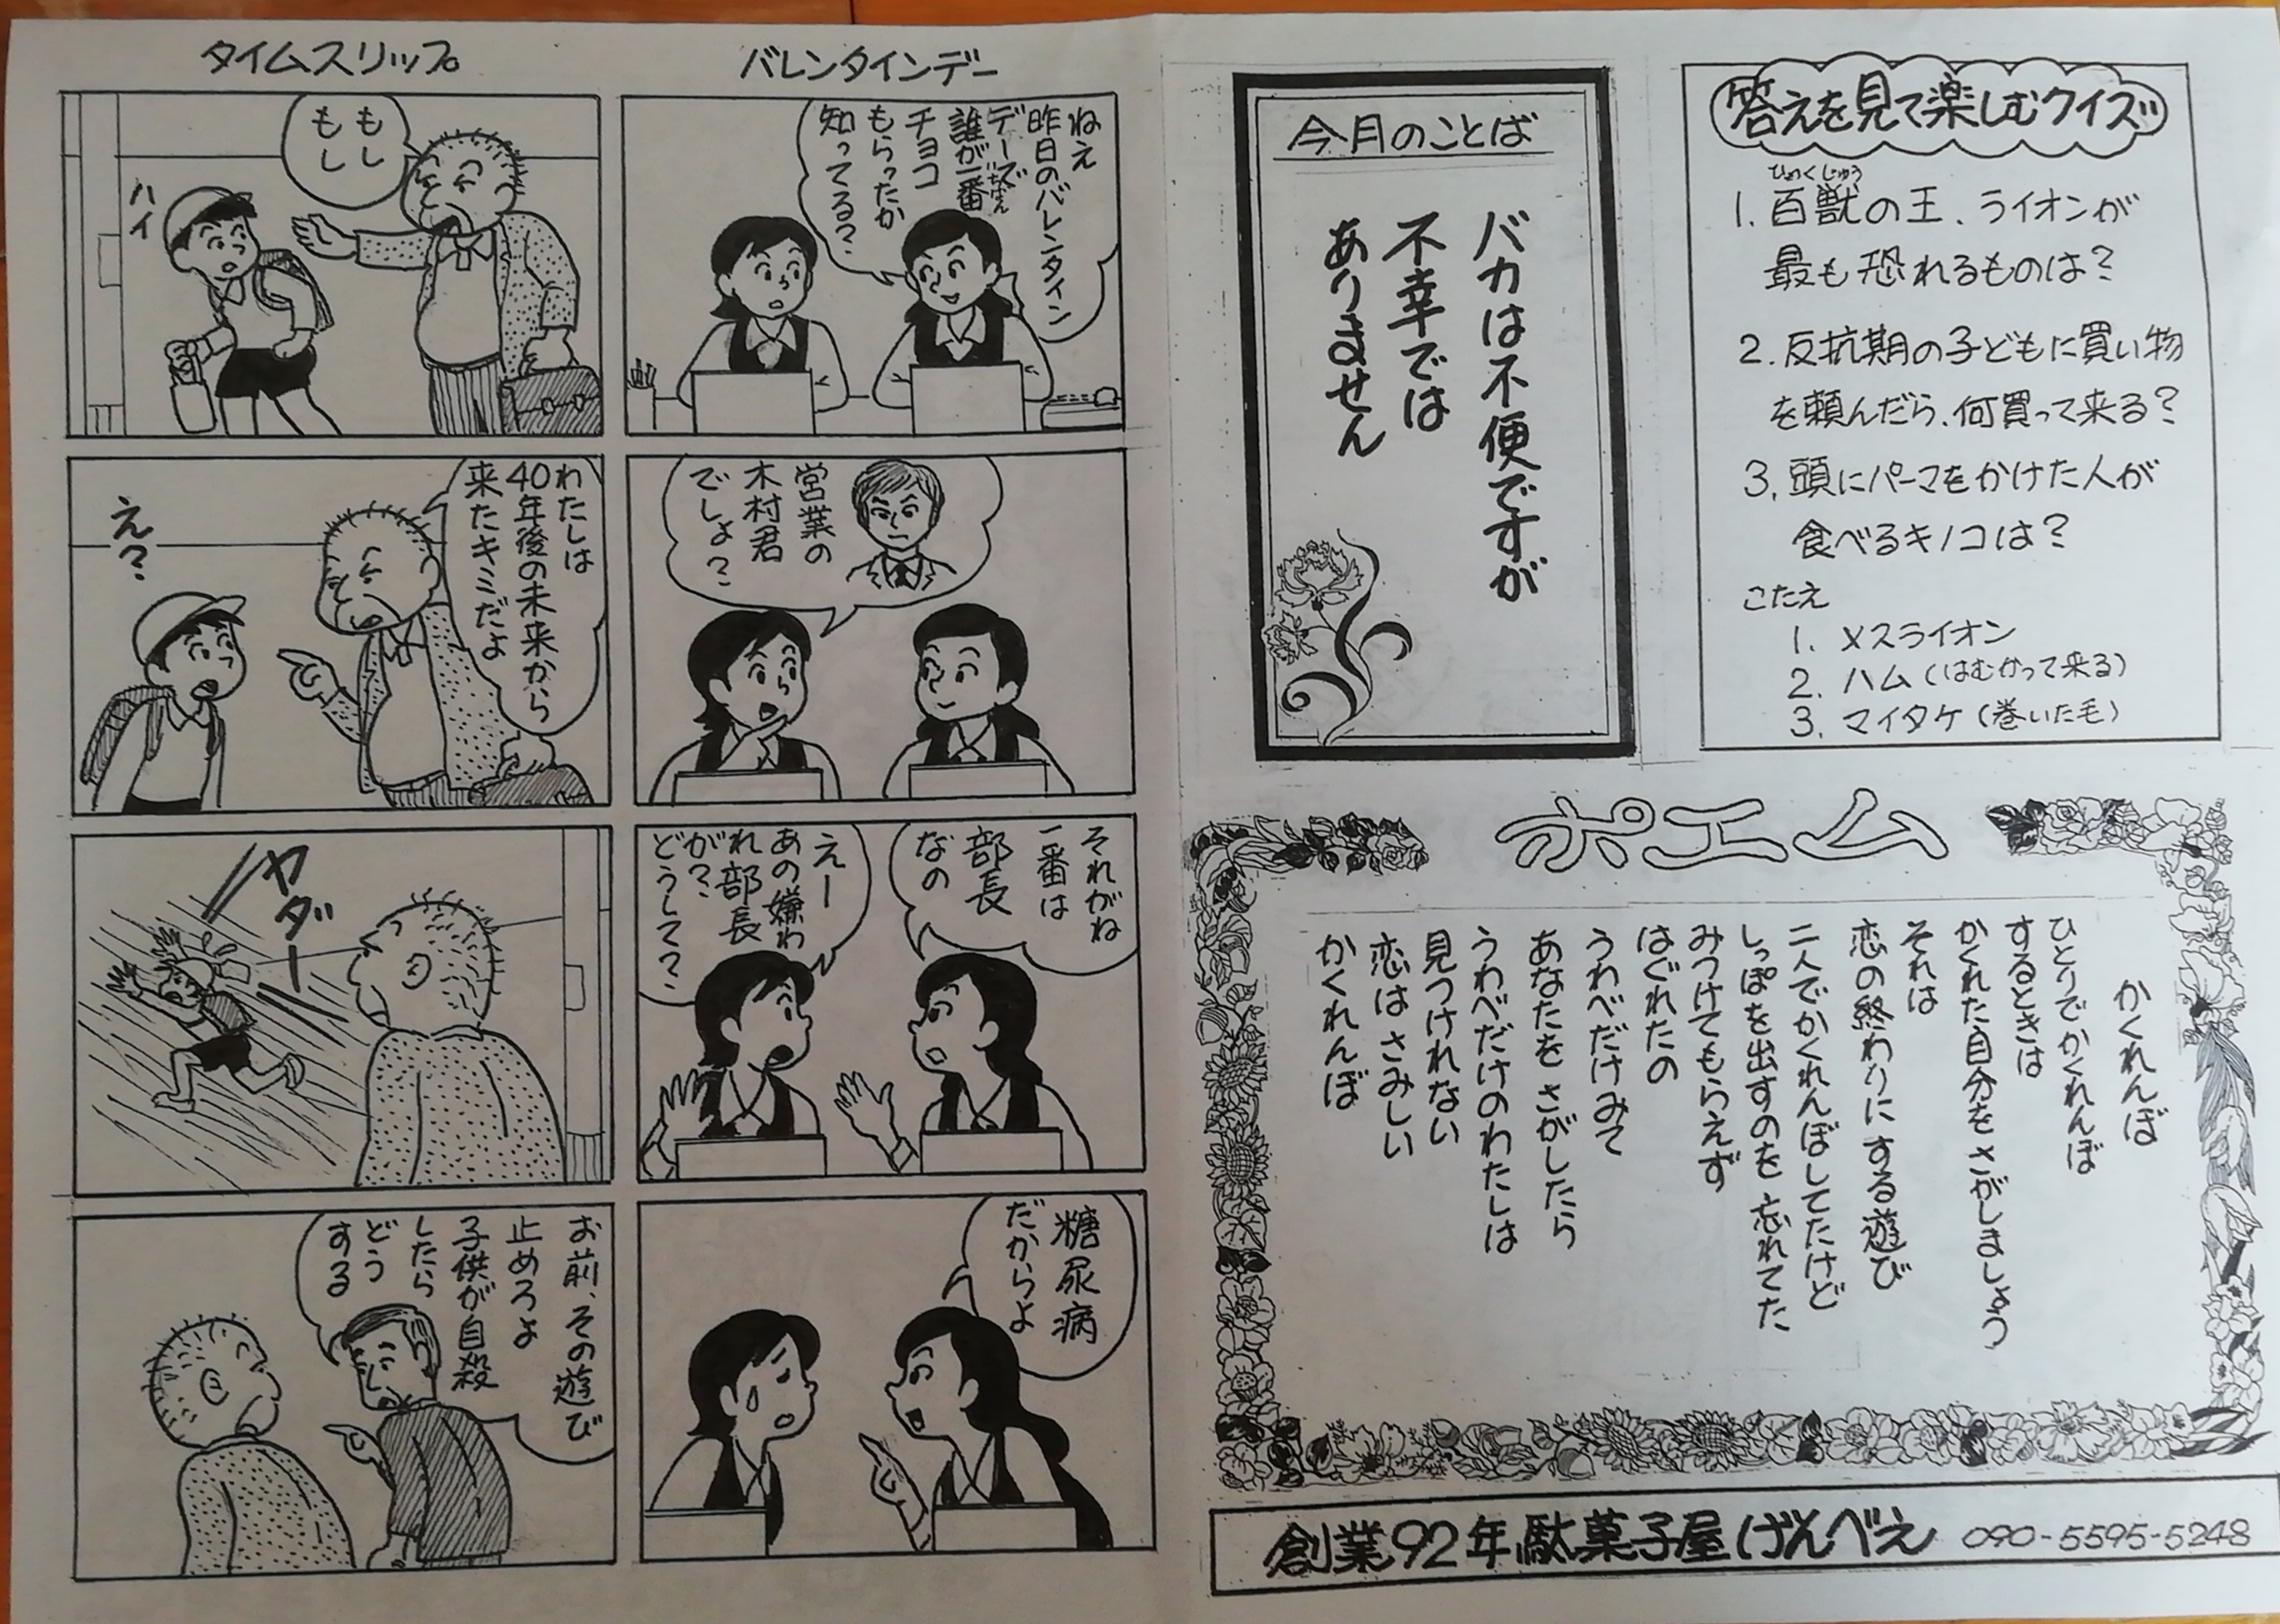 答えを見て楽しむクイズ
ひゃくじゅう
1. 百獣の王、ライオンが
最も恐れるものは?
2. 反抗期の子どもに買い物
を頼んだら、何買って来る?
3. 頭にパーマをかけた人が
食べるキノコは?
こたえ
1. メスライオン
2. ハム(はむかって来る)
3. マイタケ(巻いた毛)
今月のことば
バカは不便ですが
不幸では
ありません
バレンタインデー
ねえ
昨日のバレンタイン
デーで
誰が一番
いちばん
チョコ
もらったか
知ってる?
営業の
木村君
でしょ?
それがね
一番は
部長
なの
えー
あの嫌わ
れ部長
が?
どうして?
糖尿病
だからよ
タイムスリップ
もし
もし
ハイ
わたしは
40年後の未来から
来たキミだよ
え?
ヤダー
お前、その遊び
止めろよ
子供が自殺
したら
どう
する
ポエム
かくれんぼ
ひとりでかくれんぼ
するときは
かくれた自分をさがしましょう
それは
恋の終わりにする遊び
二人でかくれんぼしてたけど
しっぽを出すのを忘れてた
みつけてもらえず
はぐれたの
うわべだけみて
あなたをさがしたら
うわべだけのわたしは
見つけれない
恋はさみしい
かくれんぼ
創業92年駄菓子屋げんべえ 090-5595-5248